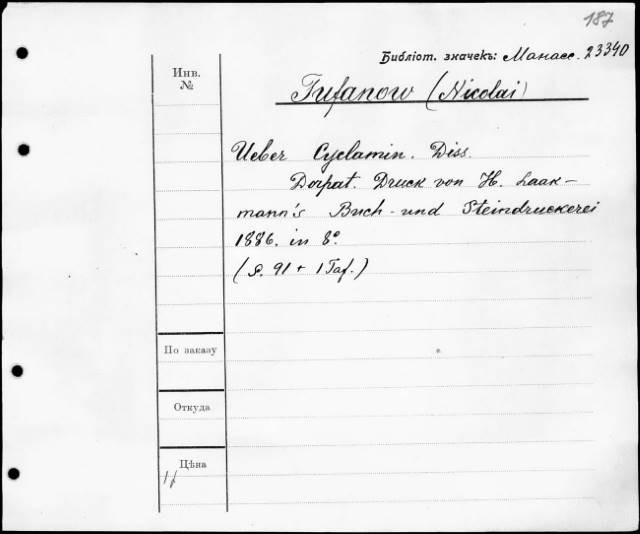 187
Библіот. значекъ: Манасс. 23340
Инв.
№
Tufanow (Nicolai)
Ueber Cyclamin. Diss.
Dorpat. Druck von H. Laak-
mann's Buch- und Steindruckerei
1886. in 8º.
(S. 91 + 1 Taf.)
По заказу
Откуда
Цѣна